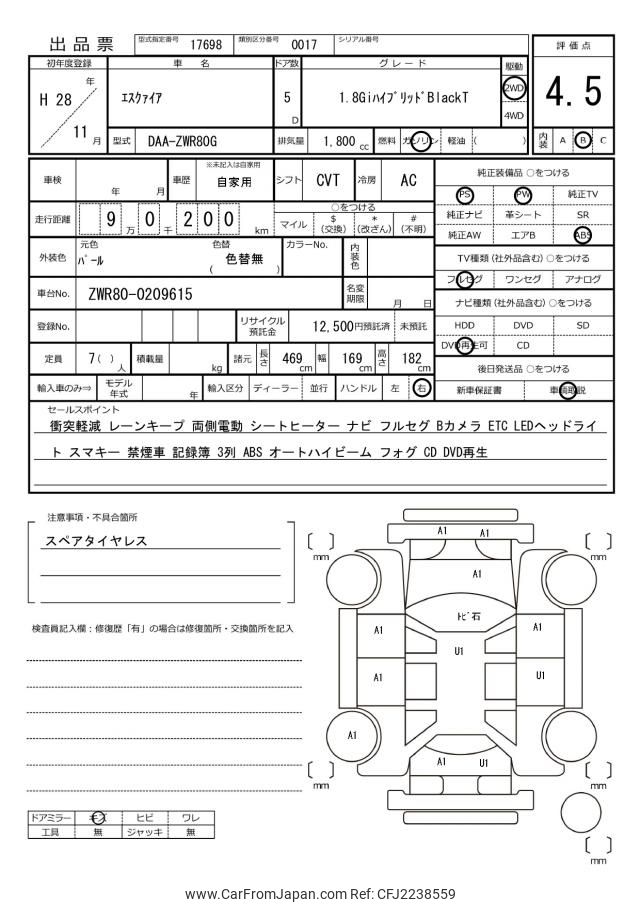 出品票 型式指定番号 17698 類別区分番号 0017 シリアル番号
評価点
4.5
内装 A B C
初年度登録 車名 ドア数 グレード 駆動
H 28 年 11 月
エスクァイア
5 D
1.8Gi ハイブリッド BlackT
2WD
4WD
型式 DAA-ZWR80G 排気量 1,800 cc 燃料 ガソリン 軽油 ( )
車検 年 月 車歴 ※未記入は自家用 自家用 シフト CVT 冷房 AC
走行距離 9 万 0 千 2 0 0 km
○をつける
マイル $(交換) *(改ざん) #(不明)
外装色 元色 パール 色替 ( 色替無 ) カラーNo. 内装色
車台No. ZWR80-0209615 名変期限 月 日
登録No. リサイクル預託金 12,500円預託済 未預託
定員 7( )人 積載量 kg 諸元 長さ 469cm 幅 169cm 高さ 182cm
輸入車のみ⇒ モデル年式 年 輸入区分 ディーラー 並行 ハンドル 左 右
純正装備品 ○をつける
PS PW 純正TV
純正ナビ 革シート SR
純正AW エアB ABS
TV種類(社外品含む) ○をつける
フルセグ ワンセグ アナログ
ナビ種類(社外品含む) ○をつける
HDD DVD SD
DVD再生可 CD
後日発送品 ○をつける
新車保証書 車輌取説
セールスポイント
衝突軽減 レーンキープ 両側電動 シートヒーター ナビ フルセグ Bカメラ ETC LEDヘッドライ
ト スマキー 禁煙車 記録簿 3列 ABS オートハイビーム フォグ CD DVD再生
注意事項・不具合箇所
スペアタイヤレス
検査員記入欄:修復歴「有」の場合は修復箇所・交換箇所を記入
ドアミラー キズ ヒビ ワレ
工具 無 ジャッキ 無
A1 A1
mm mm
A1
トビ石
A1 A1
U1
A1 U1
A1
A1 U1
mm mm
mm
www.CarFromJapan.com Ref: CFJ2238559